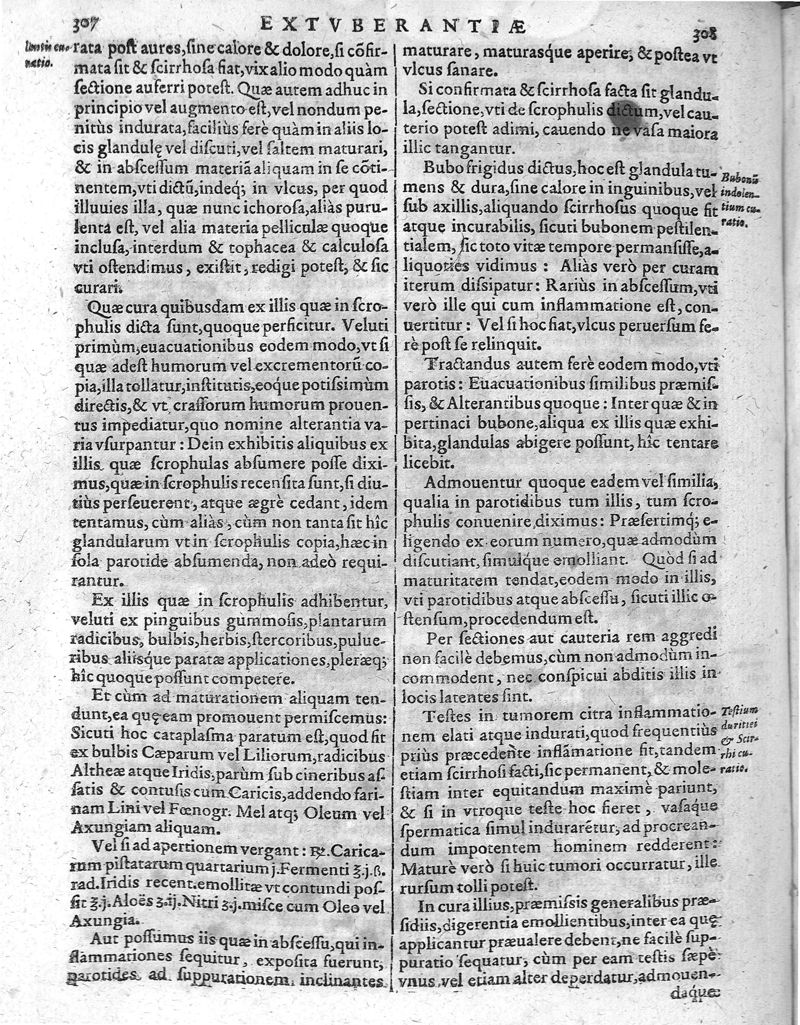 307 EXTVBERANTIÆ 308
rata post aures, sine calore & dolore, si cõfir-
mata sit & scirrhosa fiat, vix alio modo quàm
sectione auferri potest. Quæ autem adhuc in
principio vel augmento est, vel nondum pe-
nitùs indurata, faciliùs ferè quàm in aliis lo-
cis glandulę vel discuti, vel saltem maturari,
& in abscessum materiã aliquam in se cõti-
nentem, vti dictũ, indeq; in vlcus, per quod
illuuies illa, quæ nunc ichorosa, aliàs puru-
lenta est, vel alia materia pelliculæ quoque
inclusa, interdum & tophacea & calculosa
vti ostendimus, existit, redigi potest, & sic
curari.
Quæ cura quibusdam ex illis quæ in scro-
phulis dicta sunt, quoque perficitur. Veluti
primùm, euacuationibus eodem modo, vt si
quæ adest humorum vel excrementorũ co-
pia, illa tollatur, institutis, eoque potissimùm
directis, & vt crassorum humorum prouen-
tus impediatur, quo nomine alterantia va-
ria vsurpantur: Dein exhibitis aliquibus ex
illis quæ scrophulas absumere posse dixi-
mus, quæ in scrophulis recensita sunt, si diu-
tiùs perseuerent, atque ægrè cedant, idem
tentamus, cùm aliàs, cùm non tanta sit hîc
glandularum vt in scrophulis copia, hæc in
sola parotide absumenda, non adeò requi-
rantur.
Ex illis quæ in scrophulis adhibentur,
veluti ex pinguibus gummosis, plantarum
radicibus, bulbis, herbis, stercoribus, pulue-
ribus aliisque paratæ applicationes, pleræq;
hîc quoque possunt competere.
Et cùm ad maturationem aliquam ten-
dunt, ea quę eam promouent permiscemus:
Sicuti hoc cataplasma paratum est, quod fit
ex bulbis Cæparum vel Liliorum, radicibus
Altheæ atque Iridis, parùm sub cineribus as-
satis & contusis cum Caricis, addendo fari-
nam Lini vel Fœnogr. Mel atq; Oleum vel
Axungiam aliquam.
Vel si ad apertionem vergant: ℞. Carica-
rum pistatarum quartarium j. Fermenti ℥.j.ß.
rad. Iridis recent. emollitæ vt contundi pos-
sit ℥.j. Aloës ʒ.ij. Nitri ʒ.j. misce cum Oleo vel
Axungia.
Aut possumus iis quæ in abscessu, qui in-
flammationes sequitur, exposita fuerunt,
parotides ad suppurationem inclinantes
maturare, maturasque aperire, & postea vt
vlcus sanare.
Si confirmata & scirrhosa facta sit glandu-
la, sectione, vti de scrophulis dictum, vel cau-
terio potest adimi, cauendo ne vasa maiora
illic tangantur.
Bubo frigidus dictus, hoc est glandula tu-
mens & dura, sine calore in inguinibus, vel
sub axillis, aliquando scirrhosus quoque fit
atque incurabilis, sicuti bubonem pestilen-
tialem, sic toto vitæ tempore permansisse, a-
liquoties vidimus: Aliàs verò per curam
iterum dissipatur: Rariùs in abscessum, vti
verò ille qui cum inflammatione est, con-
uertitur: Vel si hoc fiat, vlcus peruersum fe-
rè post se relinquit.
Tractandus autem ferè eodem modo, vti
parotis: Euacuationibus similibus præmis-
sis, & Alterantibus quoque: Inter quæ & in
pertinaci bubone, aliqua ex illis quæ exhi-
bita, glandulas abigere possunt, hîc tentare
licebit.
Admouentur quoque eadem vel similia,
qualia in parotidibus tum illis, tum scro-
phulis conuenire, diximus: Præsertimq; e-
ligendo ex eorum numero, quæ admodùm
discutiant, simulque emolliant. Quòd si ad
maturitatem tendat, eodem modo in illis,
vti parotidibus atque abscessu, sicuti illic o-
stensum, procedendum est.
Per sectiones aut cauteria rem aggredi
non facilè debemus, cùm non admodùm in-
commodent, nec conspicui abditis illis in
locis latentes sint.
Testes in tumorem citra inflammatio-
nem elati atque indurati, quod frequentiùs
priùs præcedente inflãmatione fit, tandem
etiam scirrhosi facti, sic permanent, & mole-
stiam inter equitandum maximè pariunt,
& si in vtroque teste hoc fieret, vasaque
spermatica simul indurarẽtur, ad procrean-
dum impotentem hominem redderent:
Maturè verò si huic tumori occurratur, ille
rursum tolli potest.
In cura illius, præmissis generalibus præ-
sidiis, digerentia emollientibus, inter ea quę
applicantur præualere debent, ne facilè sup-
puratio sequatur, cùm per eam testis sæpè
vnus, vel etiam alter deperdatur, admouen-
daque
Bubonũ
indolen-
tium cu-
ratio.
Testium
duritiei
& Scir-
rhi cu-
ratio.